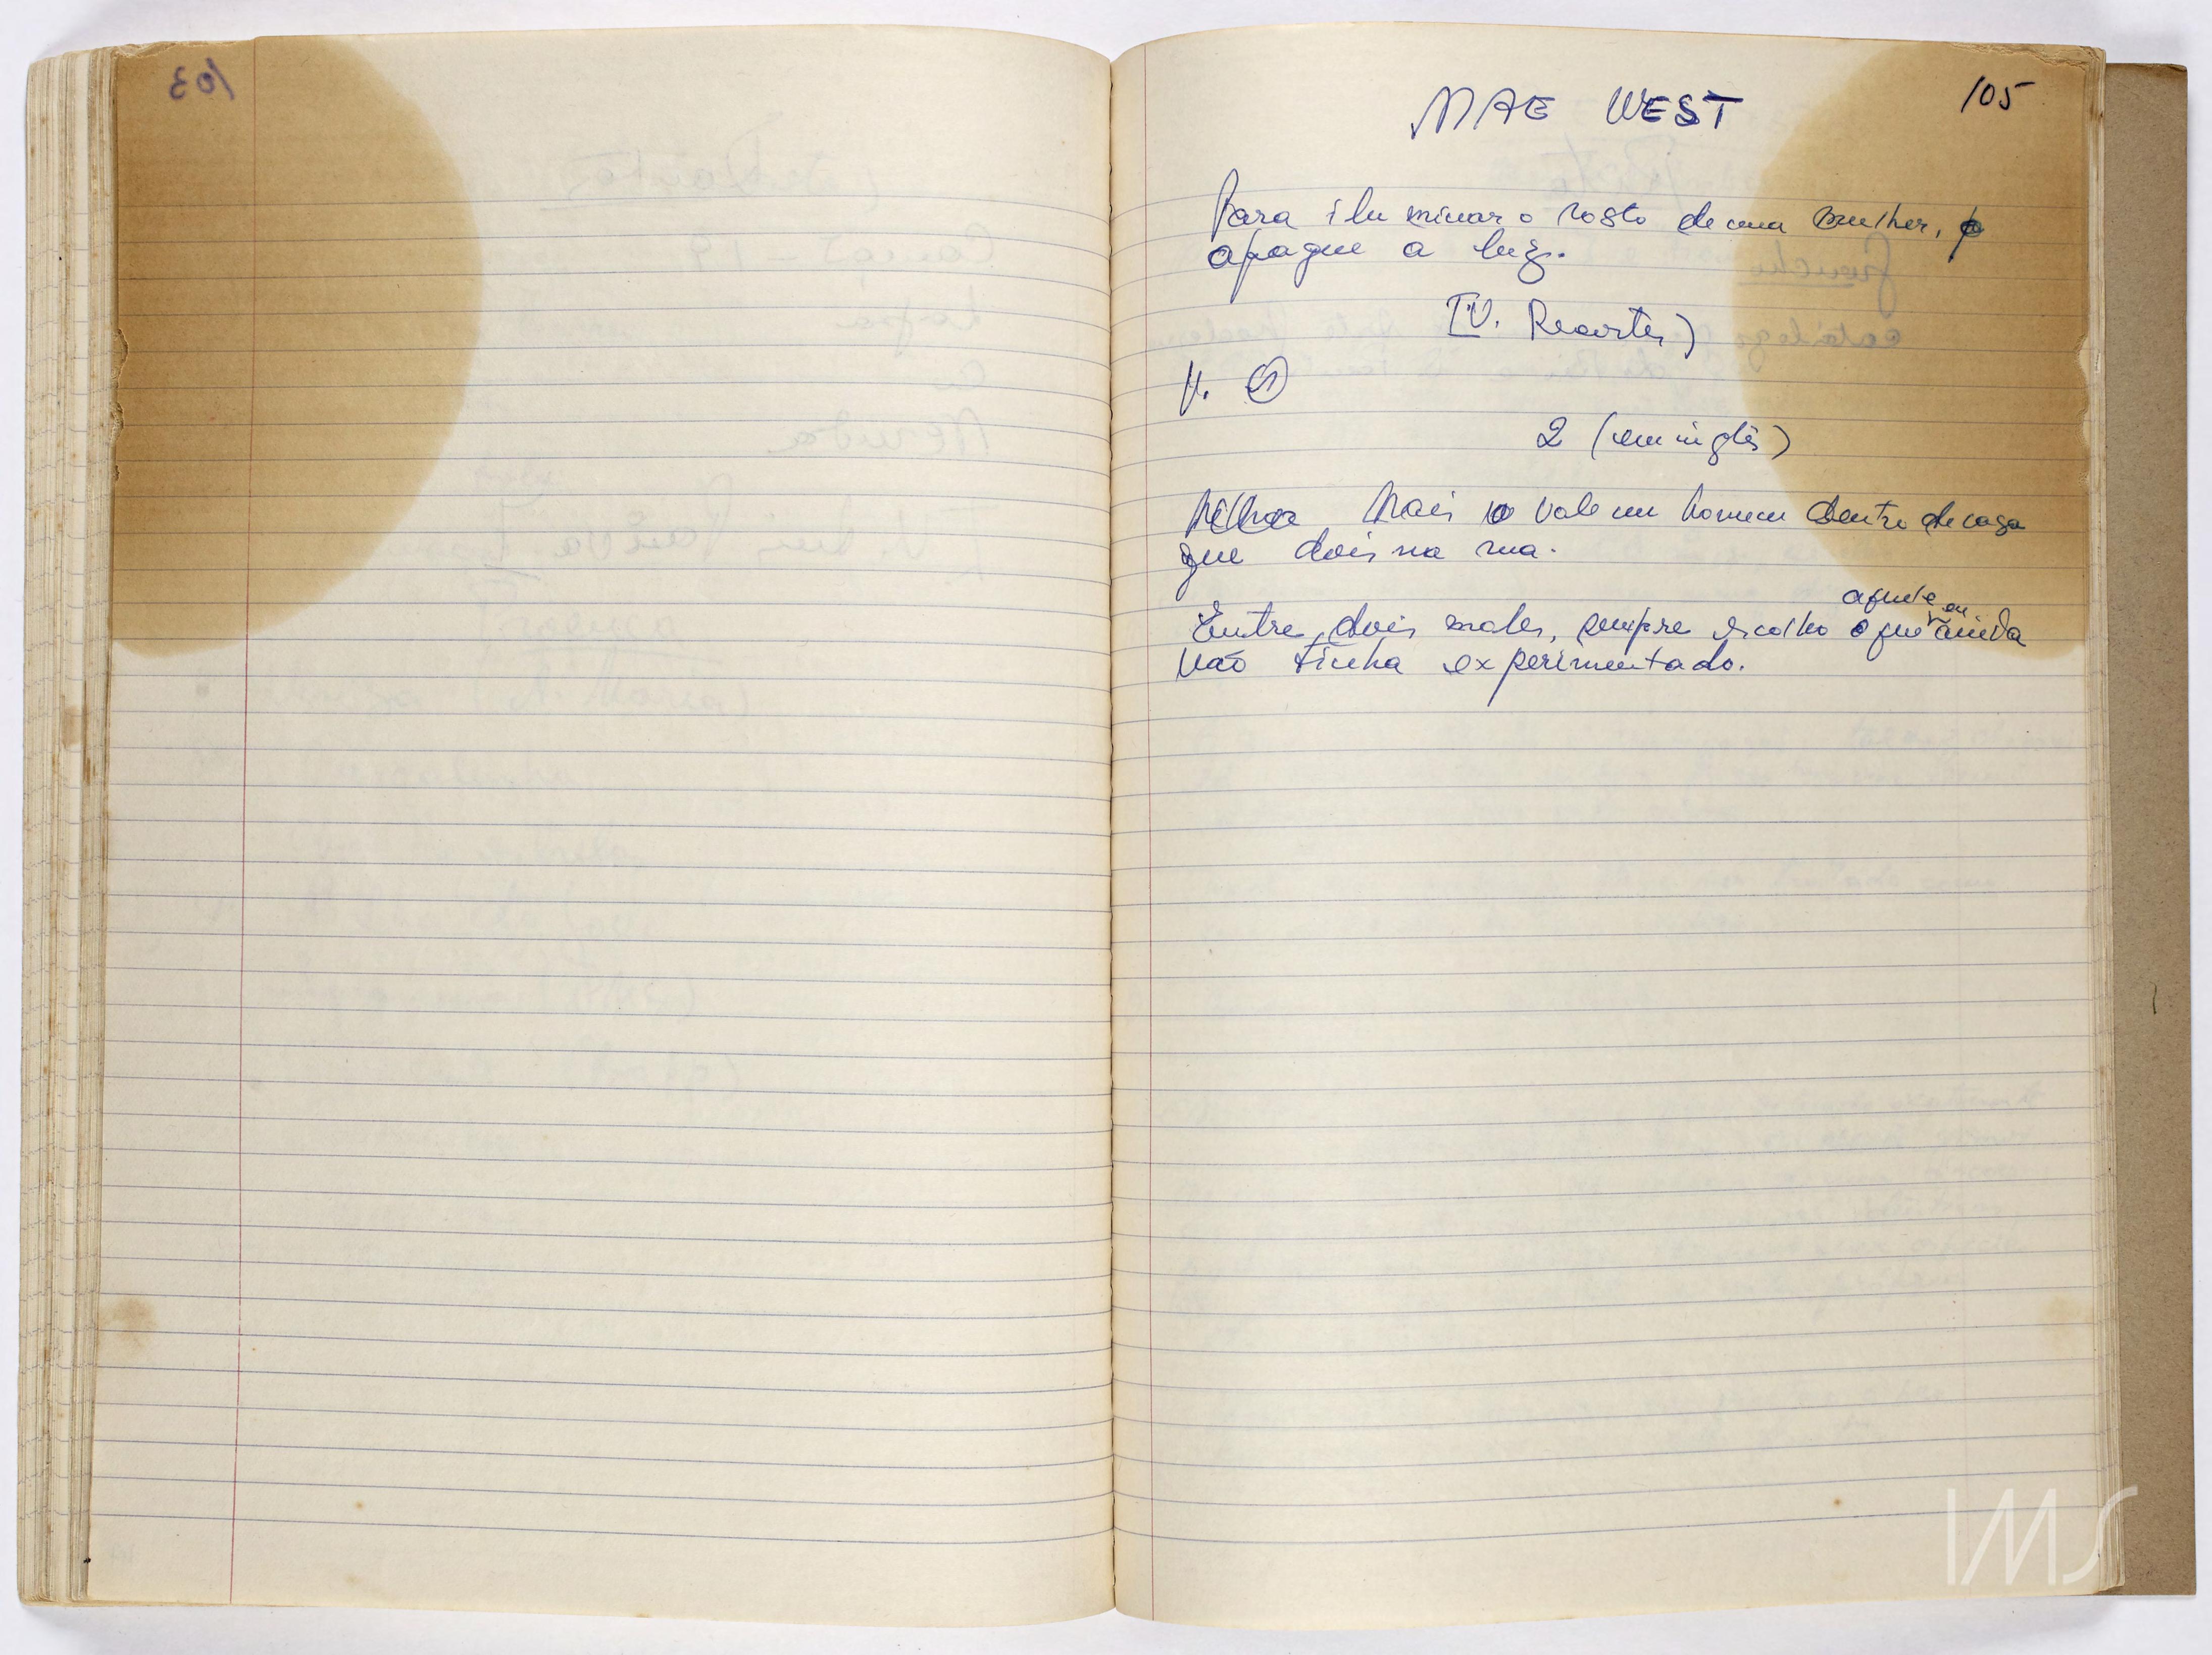 103
105
MAE WEST
Para iluminar o rosto de uma mulher,
apague a luz.
IV. Recortes)
V. 1
2 (em inglês)
Melhor Mais vale um homem dentro de casa
que dois na rua.
aquele eu
Entre dois males, sempre escolho o que ainda
não tinha experimentado.
IMS